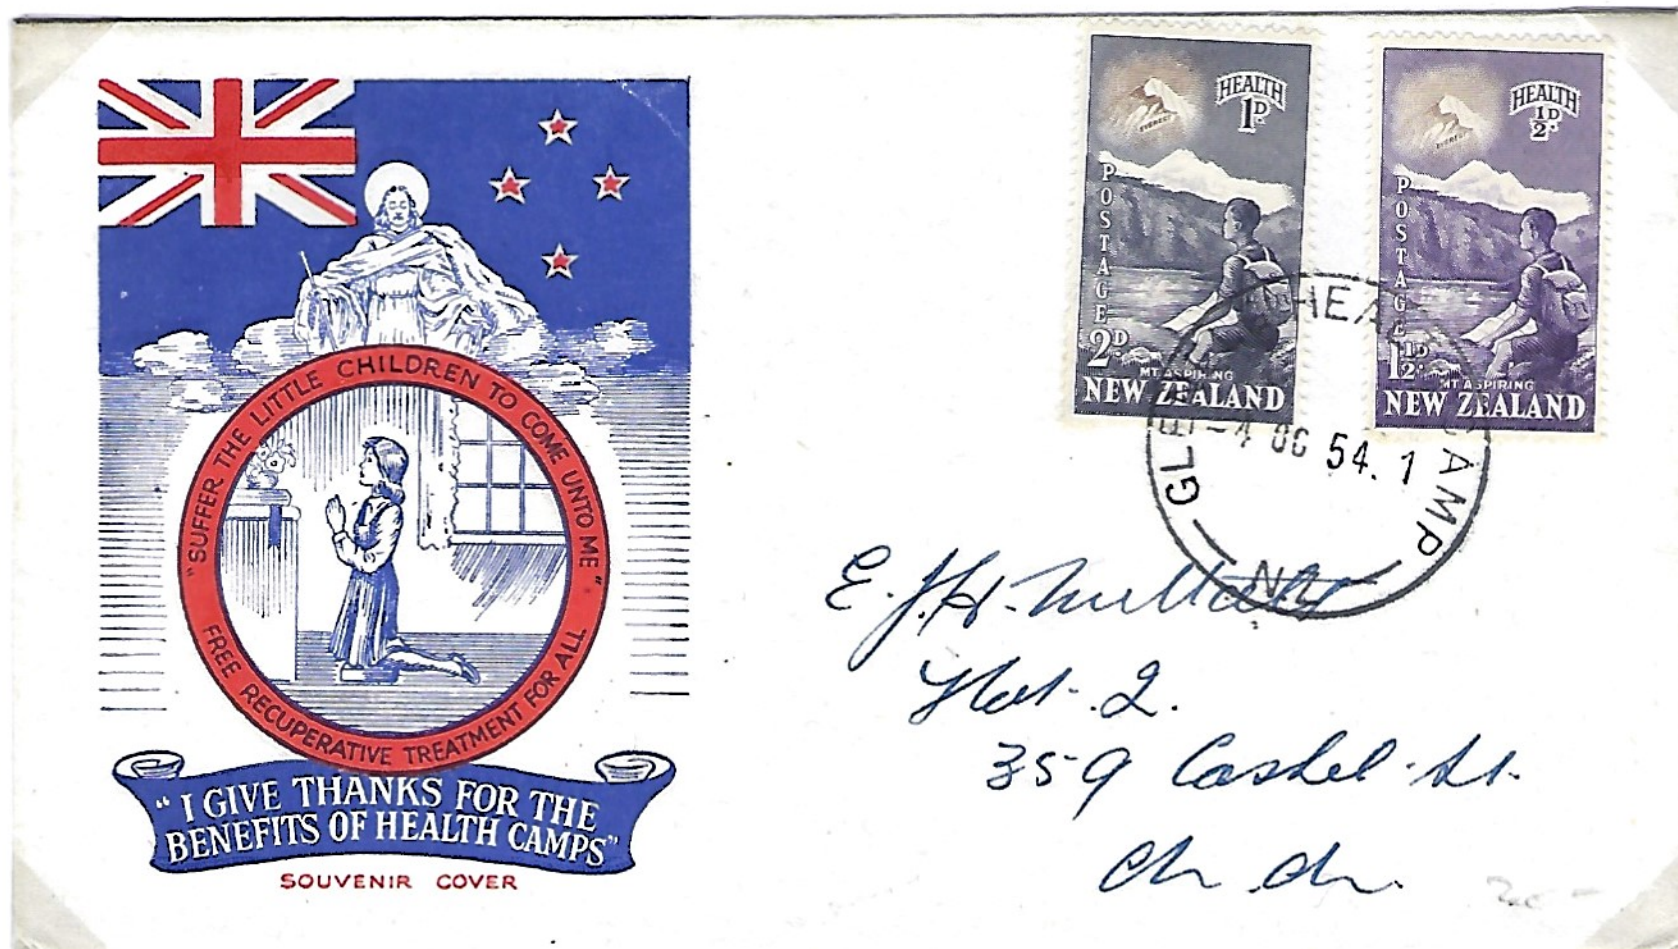 "SUFFER THE LITTLE CHILDREN TO COME UNTO ME"
FREE RECUPERATIVE TREATMENT FOR ALL
"I GIVE THANKS FOR THE
BENEFITS OF HEALTH CAMPS"
SOUVENIR COVER
EVEREST
HEALTH
1D.
POSTAGE
2D.
MT ASPIRING
NEW ZEALAND
EVEREST
HEALTH
½D.
POSTAGE
1½D.
MT ASPIRING
NEW ZEALAND
CAMP
-4 OC 54.1
N.Z.
E. J. H.
Flat. 2.
359 Cashel. St.
Ch. Ch.